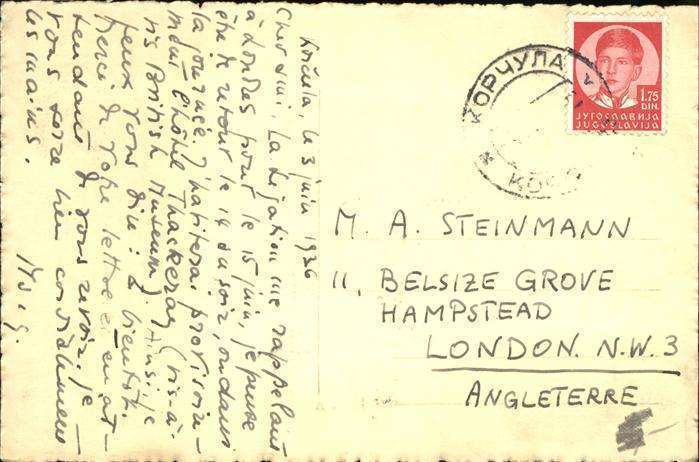 Korčula, le 3 juin 1936
Cher ami, La Légation me rappelant
à Londres pour le 15 juin, je pense
être de retour le 14 au soir, ou dans
la journée. J'habiterai provisoire-
ment l'hôtel Thackeray (vis-à-
vis British Museum). Ainsi je
peux vous dire: à bientôt.
Merci de votre lettre et en at-
tendant de vous revoir, je
vous serre bien cordialement
les mains.
M. A. STEINMANN
11, BELSIZE GROVE
HAMPSTEAD
LONDON. N.W.3
ANGLETERRE
КОРЧУЛА
1.75
DIN.
ЈУГОСЛАВИЈА
JUGOSLAVIJA